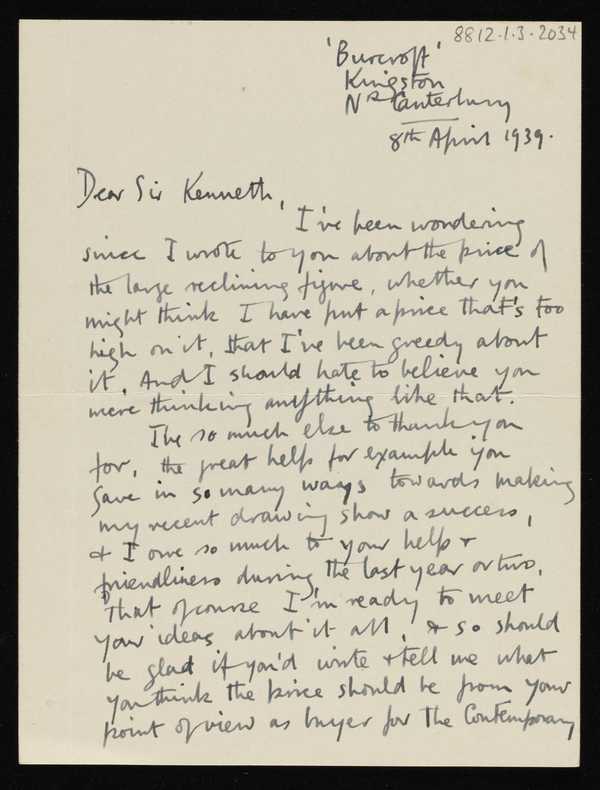 8812.1.3.2034
'Burcroft'
Kingston
Nr Canterbury
8th April 1939.
Dear Sir Kenneth,
I've been wondering
since I wrote to you about the price of
the large reclining figure, whether you
might think I have put a price that's too
high on it, that I've been greedy about
it. And I should hate to believe you
were thinking anything like that.
I've so much else to thank you
for, the great help for example you
gave in so many ways towards making
my recent drawing show a success,
& I owe so much to your help &
friendliness during the last year or two,
that of course I'm ready to meet
your ideas about it all, & so should
be glad if you'd write & tell me what
you think the price should be from your
point of view as buyer for the Contemporary